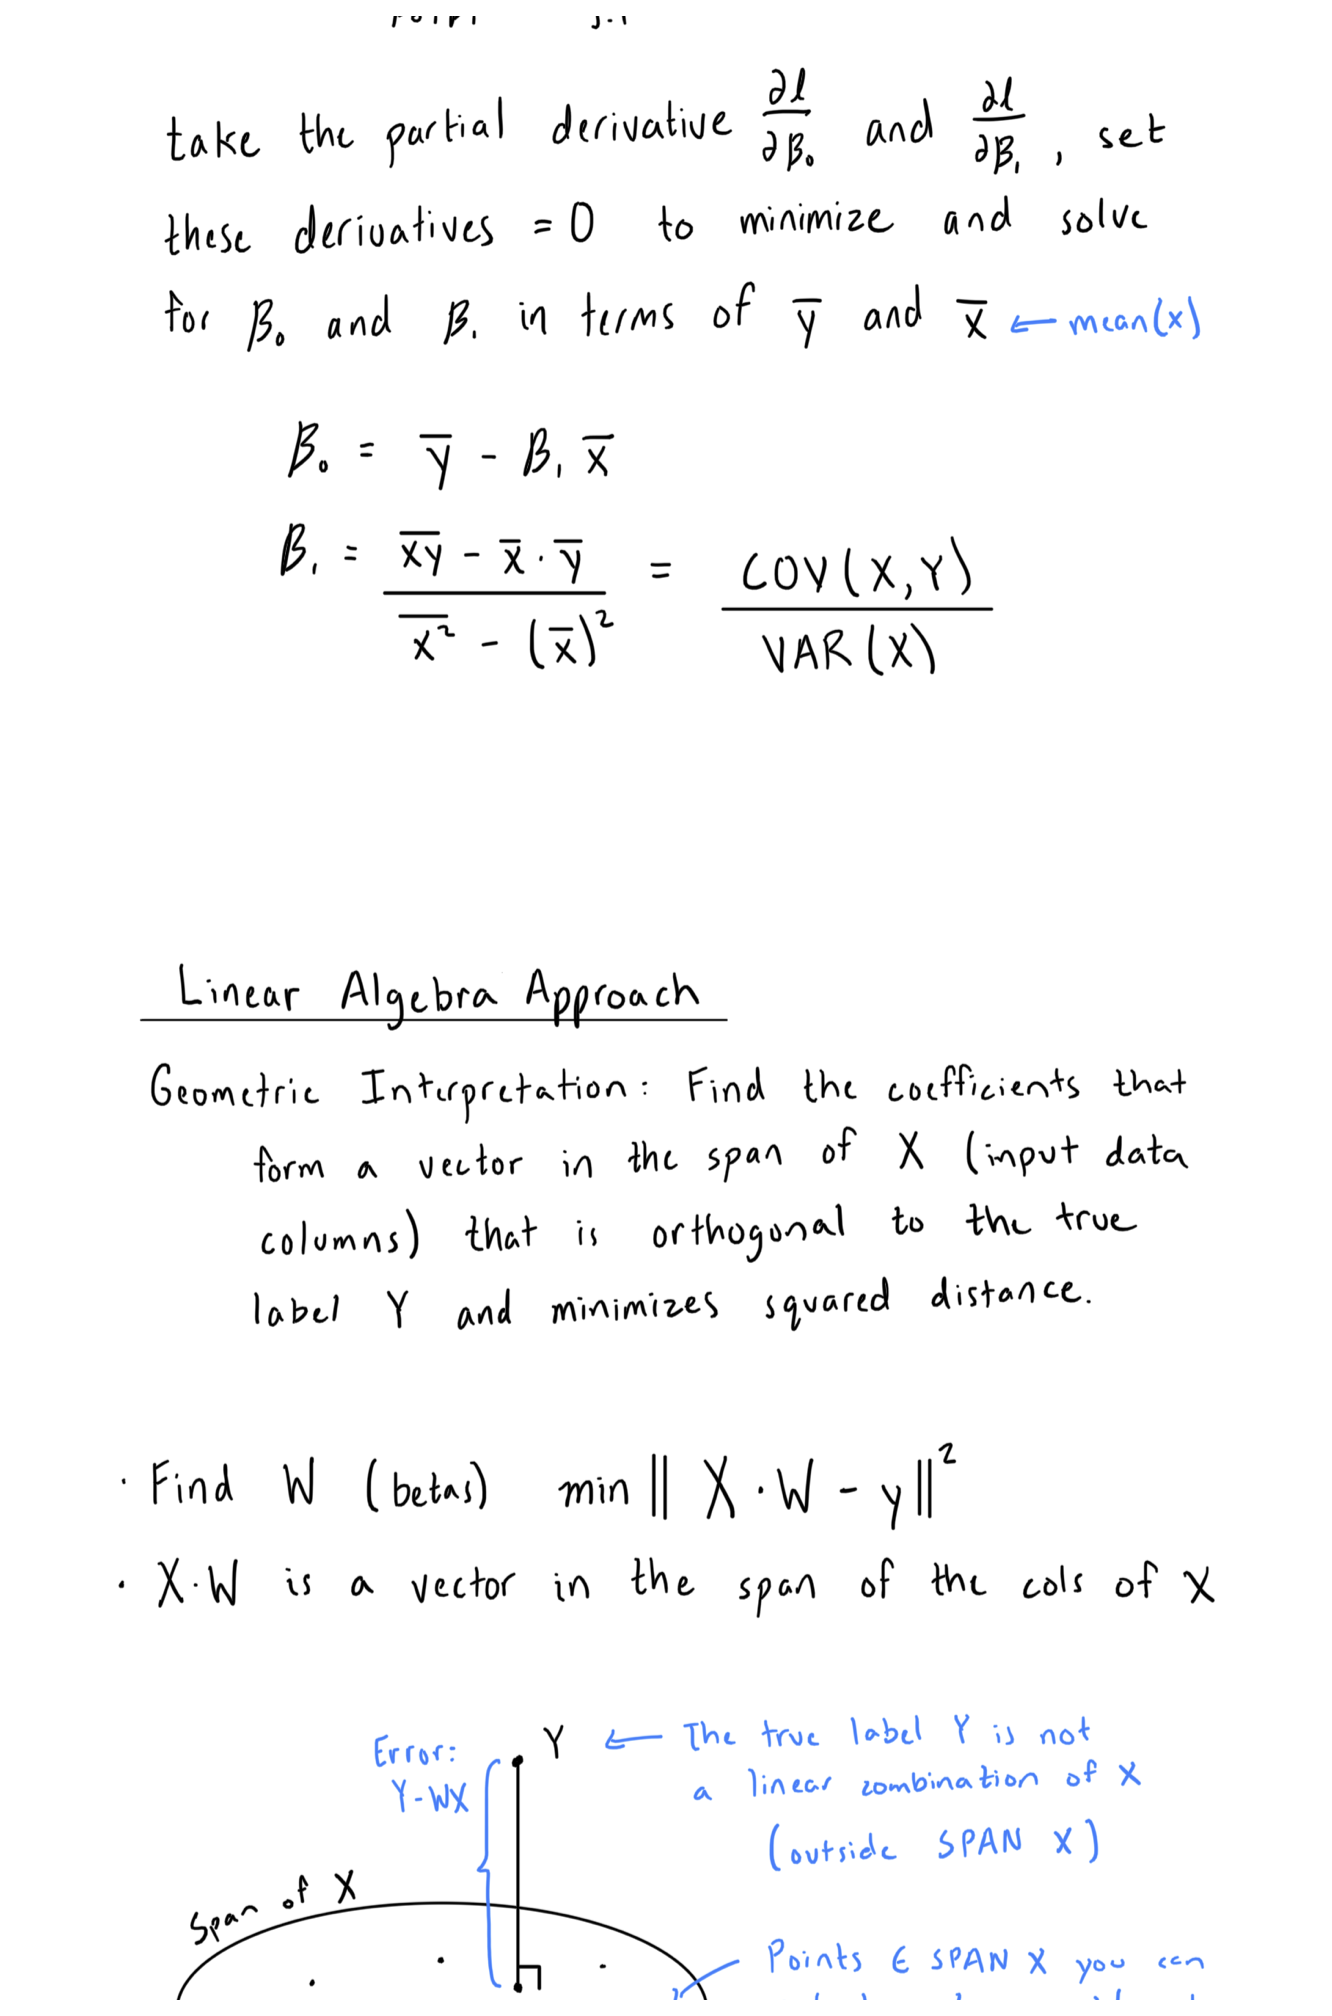 take the partial derivative ∂l/∂B₀ and ∂l/∂B₁, set
these derivatives = 0 to minimize and solve
for B₀ and B₁ in terms of y̅ and x̅ ← mean(x)
B₀ = y̅ - B₁ x̅
B₁ = (x̅y̅ - x̅ · y̅) / (x̅²̅ - (x̅)²) = COV(X,Y) / VAR(X)
Linear Algebra Approach
Geometric Interpretation: Find the coefficients that
form a vector in the span of X (input data
columns) that is orthogonal to the true
label Y and minimizes squared distance.
· Find W (betas) min || X · W - y ||²
· X·W is a vector in the span of the cols of X
Error:
Y-WX
Y ← The true label Y is not
a linear combination of X
(outside SPAN X)
Span of X
Points ∈ SPAN X you can